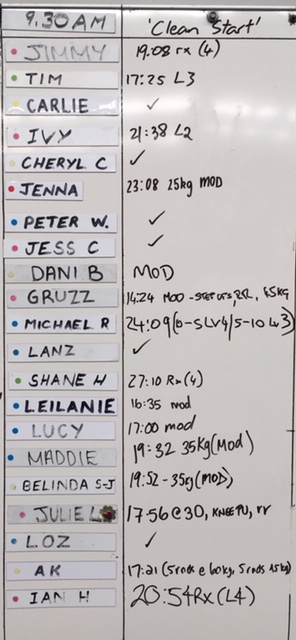 9.30 AM 'Clean Start'
JIMMY 19:08 rx (4)
TIM 17:25 L3
CARLIE ✓
IVY 21:38 L2
CHERYL C ✓
JENNA 23:08 25kg MOD
PETER W. ✓
JESS C ✓
DANI B MOD
GRUZZ 14:24 MOD - STEP UPS,
MICHAEL R 24:09 (0-5 Lv4/5-10 Lv3)
LANZ ✓
SHANE H 27:10 Rx(4)
LEILANIE 16:35 mod
LUCY 17:00 mod
MADDIE 19:32 35kg (Mod)
BELINDA S-J 19:52 - 35kg (MOD)
JULIE L 17:56 @ 30, KNEE PU, rr
LOZ ✓
AK 17:21 (5 rnds @ 60kg, 5 rnds 45kg)
IAN H 20:54 Rx (L4)